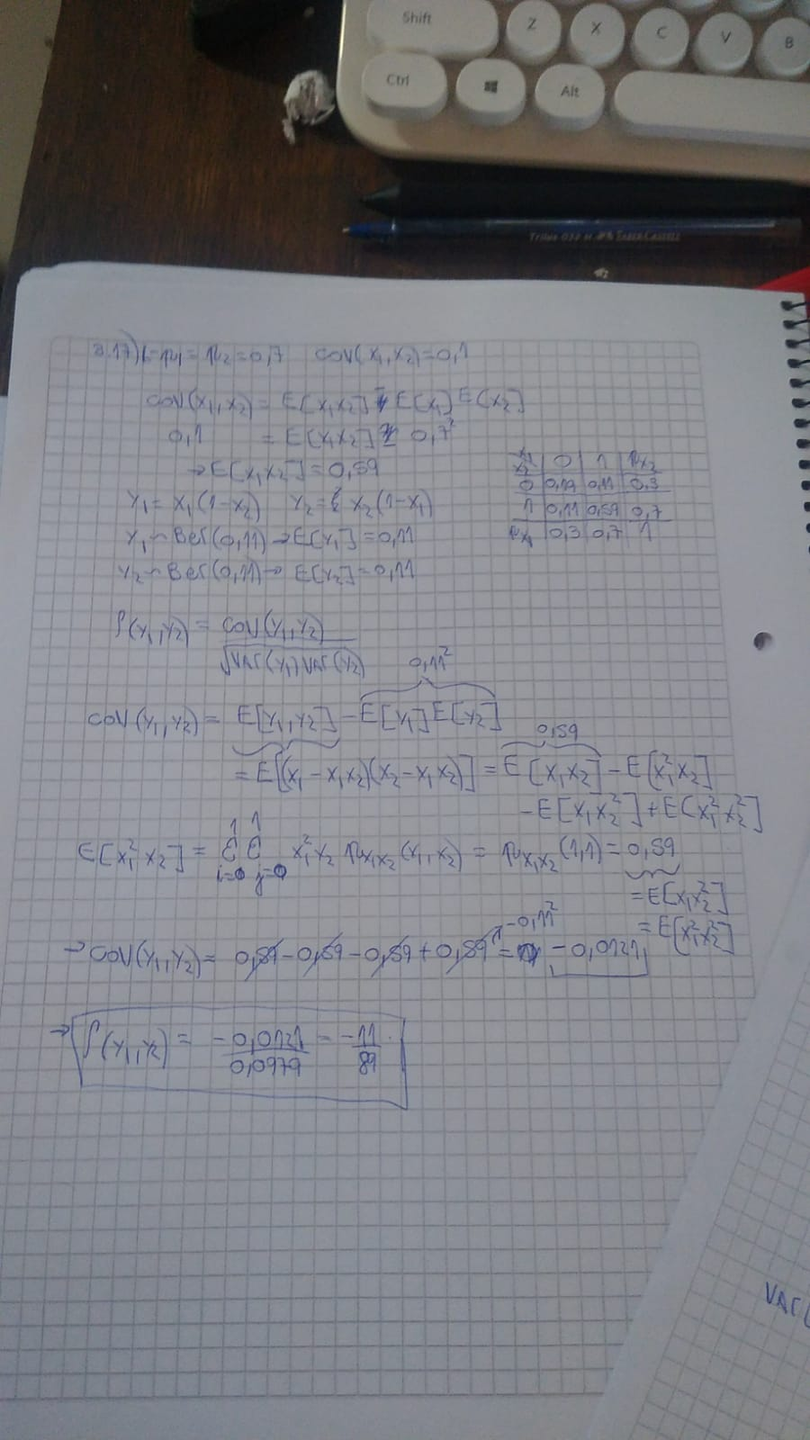 Shift
Z X C V B
Ctrl
Alt
Trilux 032 M FABER-CASTELL
3.17) p1 = p2 = 0,7 COV(X1,X2) = 0,1
COV(X1,X2) = E[X1X2] - E[X1] E[X2]
0,1 = E[X1X2] - 0,7²
→ E[X1X2] = 0,59
Y1 = X1(1-X2) Y2 = X2(1-X1)
Y1 ~ Ber(0,11) → E[Y1] = 0,11
Y2 ~ Ber(0,11) → E[Y2] = 0,11
X1 X2 0 1 pX2
0 0,19 0,11 0,3
1 0,11 0,59 0,7
pX1 0,3 0,7 1
ρ(Y1,Y2) = COV(Y1,Y2) / √VAR(Y1) VAR(Y2)
0,11²
COV(Y1,Y2) = E[Y1,Y2] - E[Y1] E[Y2]
0,59
= E[(X1 - X1X2)(X2 - X1X2)] = E[X1X2] - E[X1²X2]
- E[X1X2²] + E[X1²X2²]
1 1
E[X1²X2] = Σ Σ X1²X2 pX1X2(X1,X2) = pX1X2(1,1) = 0,59
i=0 j=0
= E[X1X2²]
= E[X1²X2²]
-0,11²
→ COV(Y1,Y2) = 0,59 - 0,59 - 0,59 + 0,59 = -0,0121
→ ρ(Y1,Y2) = -0,0121 / 0,0979 = -11/89
VAR(